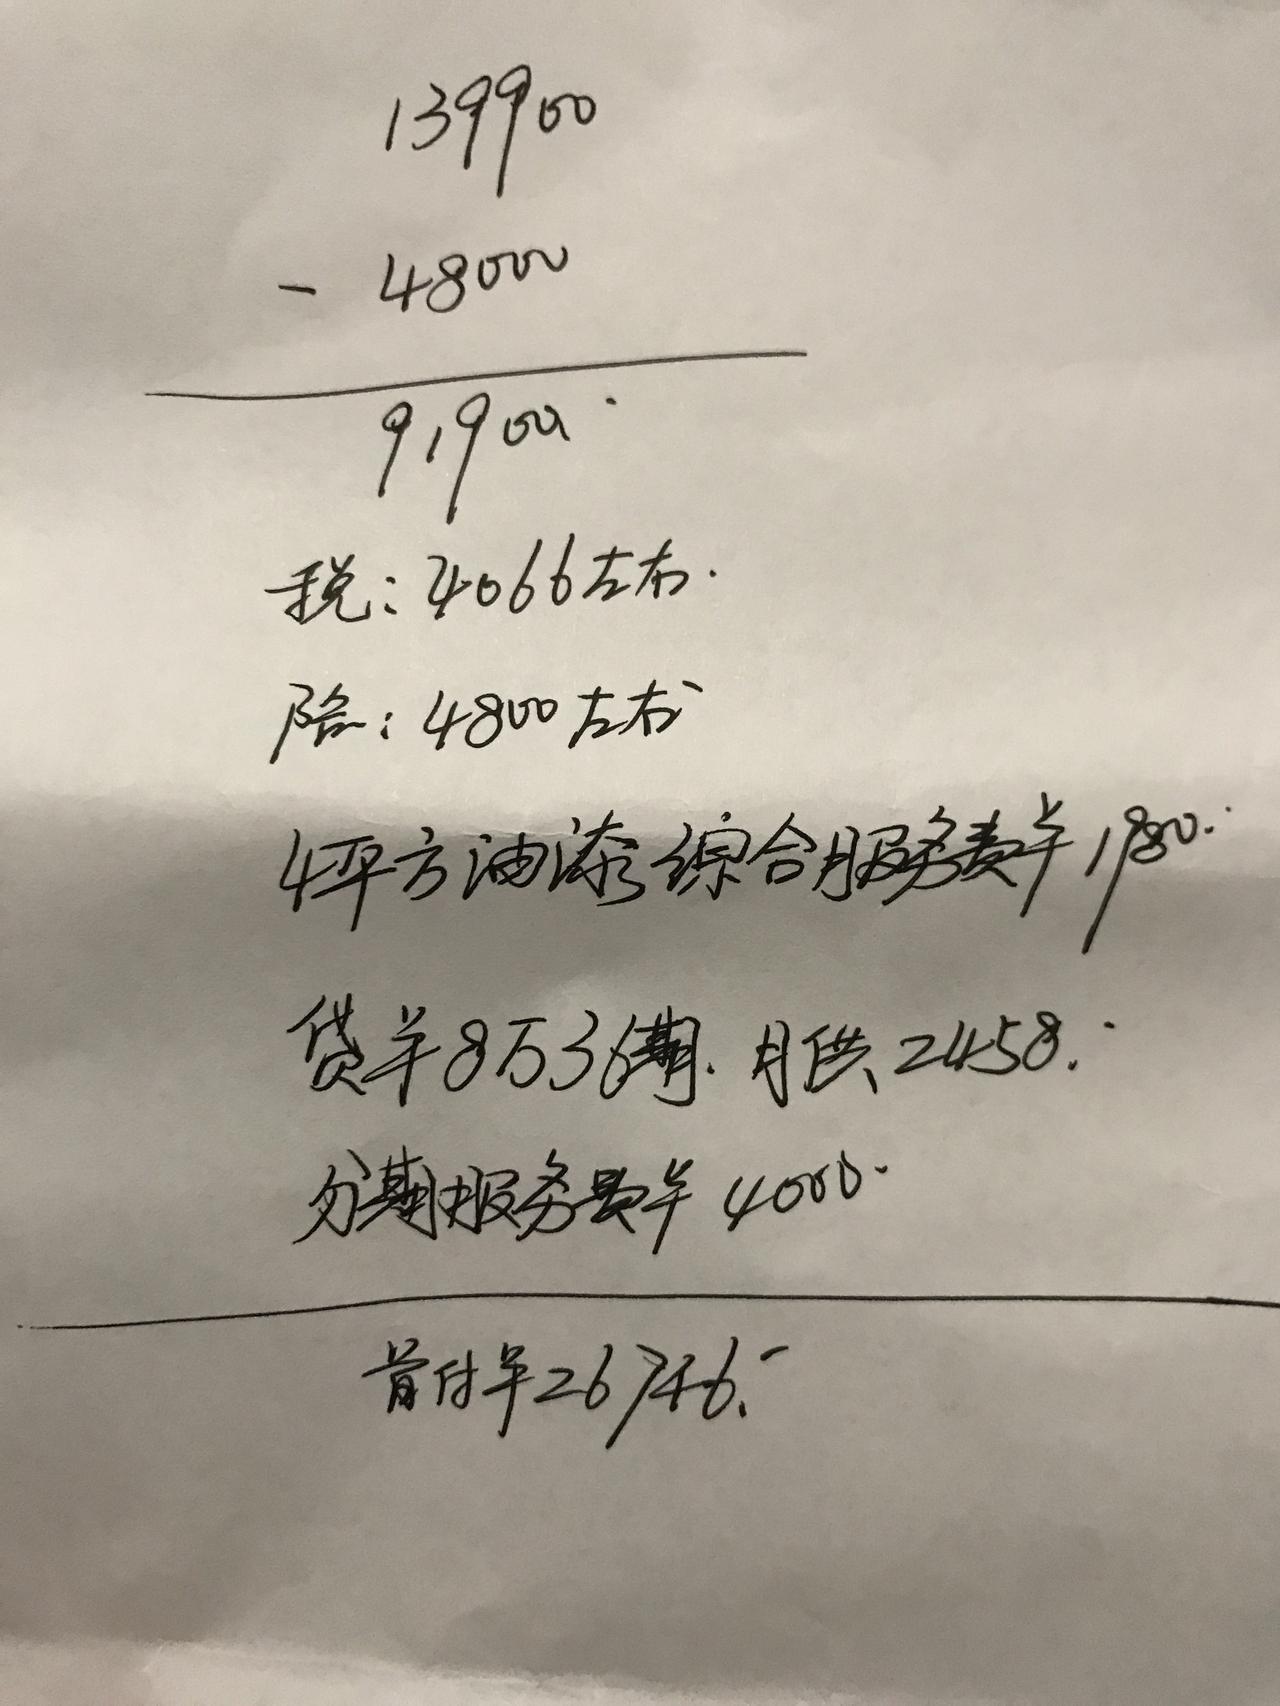 139900
- 48000
91900
税：4066左右.
险：4800左右
4平方油漆综合服务费¥1980.
贷¥8万36期. 月供2458.
分期服务费¥4000.
首付¥26746.-